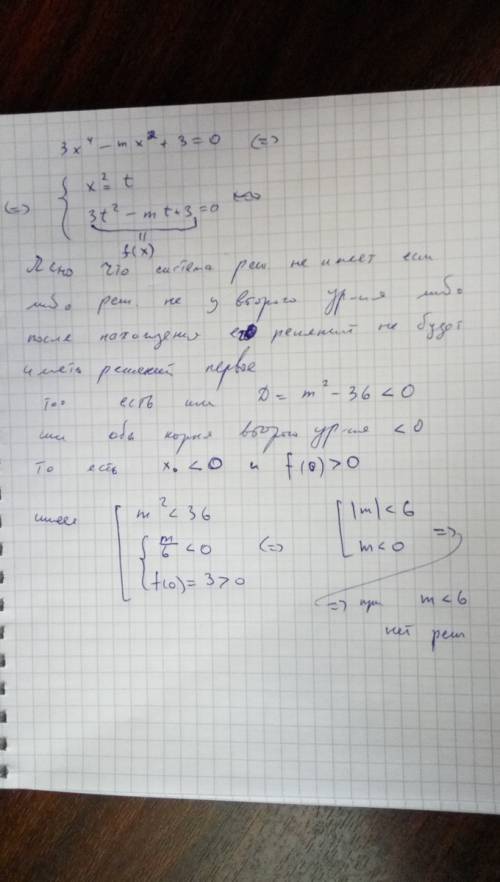 3x⁴ − mx² + 3 = 0 (=>
(=> { x² = t
3t² − mt + 3 = 0
f(x)
Ясно что система реш. не имеет если
либо реш. не у второго ур-ия либо
после нахождения его решений не будет
иметь решений первое
то есть или D = m² − 36 < 0
или оба корня второго ур-ия < 0
то есть x₀ < 0 и f(0) > 0
имеем [ m² < 36 (=> [ |m| < 6
{ m/6 < 0 m < 0 =>
f(0) = 3 > 0
=> при m < 6
нет реш